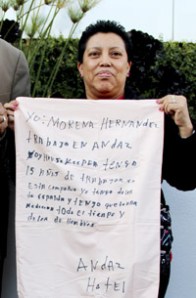 YO: MORENA HERNANDEZ
TRABAJO EN ANDAZ
SOY HOUSEKEEPER TENGO
15 AÑOS DE TRABAJAR EN
ESTA COMPAÑIA YO TENGO DOLOR
DE ESPALDA Y TENGO QUE
TODO EL TIEMPO Y
DOLOR DE HOMBROS
ANDAZ
HOTEL